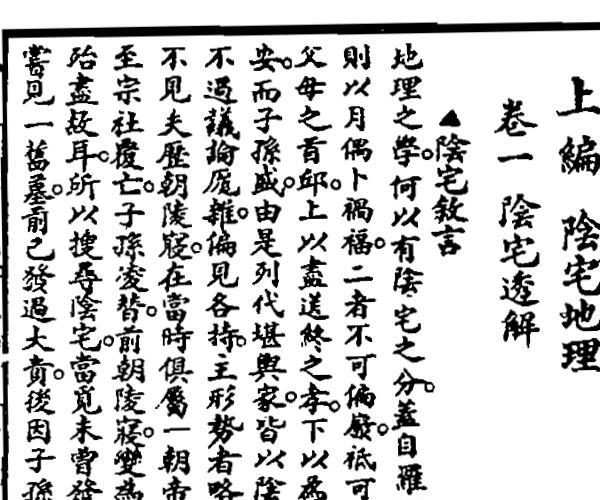 上編 陰宅地理
卷一 陰宅透解
▲陰宅敘言
地理之學。何以有陰宅之分。蓋自羅
則以月偶卜禍福。二者不可偏廢。祇可
父母之首邱。上以盡送終之孝。下以為
安。而子孫盛。由是列代堪輿家。皆以陰
不過議論厖雜。偏見各持。主形勢者略
不見夫歷朝陵寢。在當時俱屬一朝帝
至宗社覆亡。子孫凌替。前朝陵寢。變為
殆盡故耳。所以搜尋陰宅。當覓未曾發
嘗見一舊墓。前已發過大貴。後因子孫